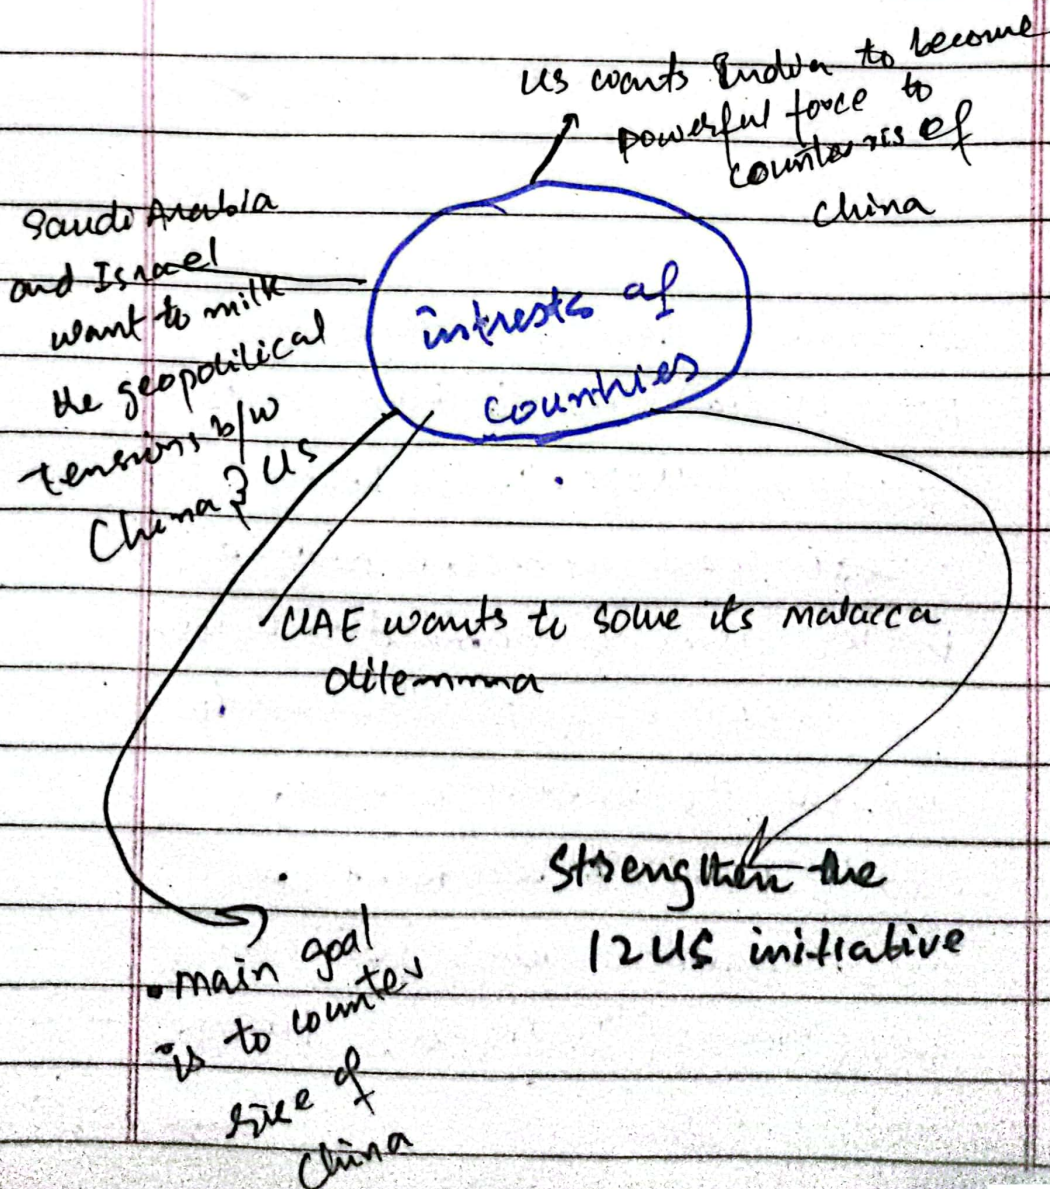 US wants India to become
powerful force to
counter ris of
China
Saudi Arabia
and Israel
want to milk
the geopolitical
tensions b/w
China & US
intrests of
countries
UAE wants to solve its malacca
dilemmma
Strengthen the
I2US initiative
• main goal
is to counter
rise of
China